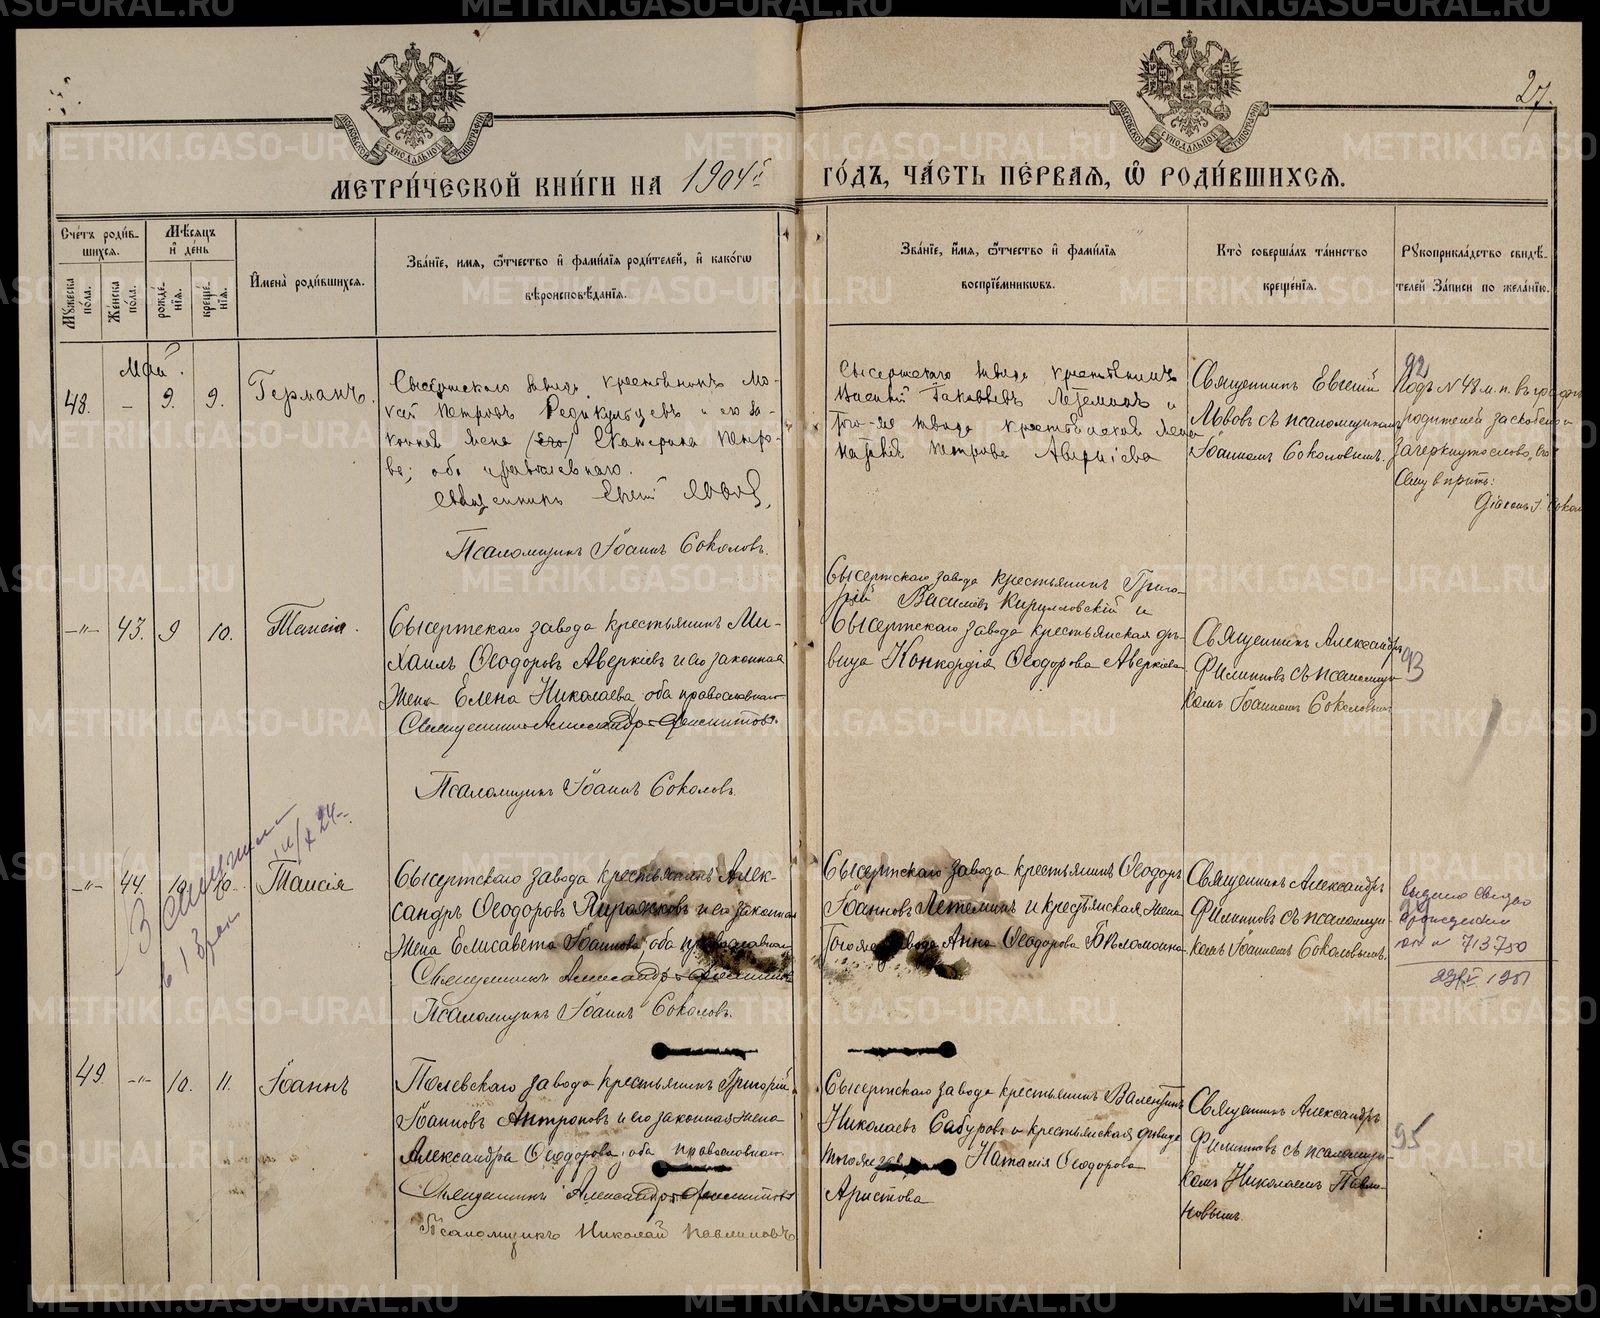 27.
МЕТРИ́ЧЕСКОЙ КНИ́ГИ НА 1904 й ГО́ДЪ, ЧА́СТЬ ПЕ́РВАЯ, Ѡ РОДИ́ВШИХСЯ.
Сче́тъ роди́вшихся.
Му́жеска по́ла.
Же́нска по́ла.
Мѣ́сяцъ и де́нь
рожде́нїя.
креще́нїя.
И҆мена̀ роди́вшихся.
Зва́нїе, и҆мя, ѻ҆́тчество и҆ фамилїя роди́телей, и҆ како́гѡ
вѣроисповѣ́данїя.
Зва́нїе, и҆́мя, ѻ҆́тчество и҆ фами́лїя
воспрїе́мниковъ.
Кто̀ соверша́лъ та́инство
креще́нїя.
Рꙋкоприкла́дство свидѣ́-
телей за́писи по жела́нїю.
Май.
48.
-
9.
9.
Германъ.
Сысертскаго завода крестьянинъ Мо-
кей Петровъ Редикульцевъ и его за-
конная жена (его) Екатерина Петро-
ва; оба православнаго.
Священникъ Евгений Львовъ.
Псаломщикъ Іоаннъ Соколовъ.
Сысертскаго завода крестьянинъ
Василій Іаковлевъ Летеминъ и
того-же завода крестьянская жена
Петрова Аверкіева
Священникъ Евгеній
Львовъ съ псаломщикомъ
Іоанномъ Соколовымъ.
92
Подъ N 48 м. п. въ граф
родителей заскоблено и
зачеркнуто слово „его"
Діаконъ І. Сокол
-"-
43.
9
10.
Таисія.
Сысертскаго завода крестьянинъ Ми-
хаилъ Ѳеодоровъ Аверкіевъ и его законная
жена Елена Николаева, оба православнаго
Священникъ Александръ Филипповъ.
Псаломщикъ Іоаннъ Соколовъ.
Сысертскаго завода крестьянинъ Григо-
рій Василіевъ Кирилловскій и
Сысертскаго завода крестьянская дѣ-
вица Конкордія Ѳеодорова Аверкіева
Священникъ Александръ
Филипповъ съ псаломщи-
комъ Іоанномъ Соколовымъ
93
-"-
44.
10
10.
Таисія
24
Сысертскаго завода крестьянинъ Алек-
сандръ Ѳеодоровъ Пирожковъ и его законная
жена Елисавета Іоаннова, оба православнаго
Священникъ Александръ Филипповъ
Псаломщикъ Іоаннъ Соколовъ.
Сысертскаго завода крестьянинъ Ѳеодоръ
Іоанновъ Летеминъ и крестьянская жена
Того же завода Анна Ѳеодорова Бѣломоина
Священникъ Александръ
Филипповъ съ псаломщи-
комъ Іоанномъ Соколовымъ.
713750
49.
-"-
10.
11.
Іоаннъ
Полевскаго завода крестьянинъ Григорій
Іоанновъ Антроповъ и его законная жена
Александра Ѳеодорова, оба православнаго
Священникъ Александръ Филипповъ
Псаломщикъ Николай Павлиновъ
Сысертскаго завода крестьянинъ Валентинъ
Николаевъ Сабуровъ и крестьянская дѣвица
того же зав Наталія Ѳеодорова
Аристова
Священникъ Александръ
Филипповъ съ псаломщи-
комъ Николаемъ Павли-
новымъ.
95
METRIKI.GASO-URAL.RU